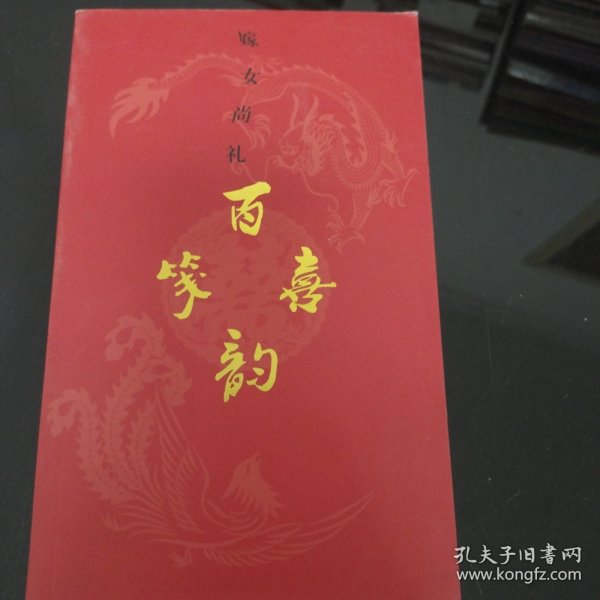 嫁女尚礼
百
笺 喜
韵
孔夫子旧書网
www.kongfz.com